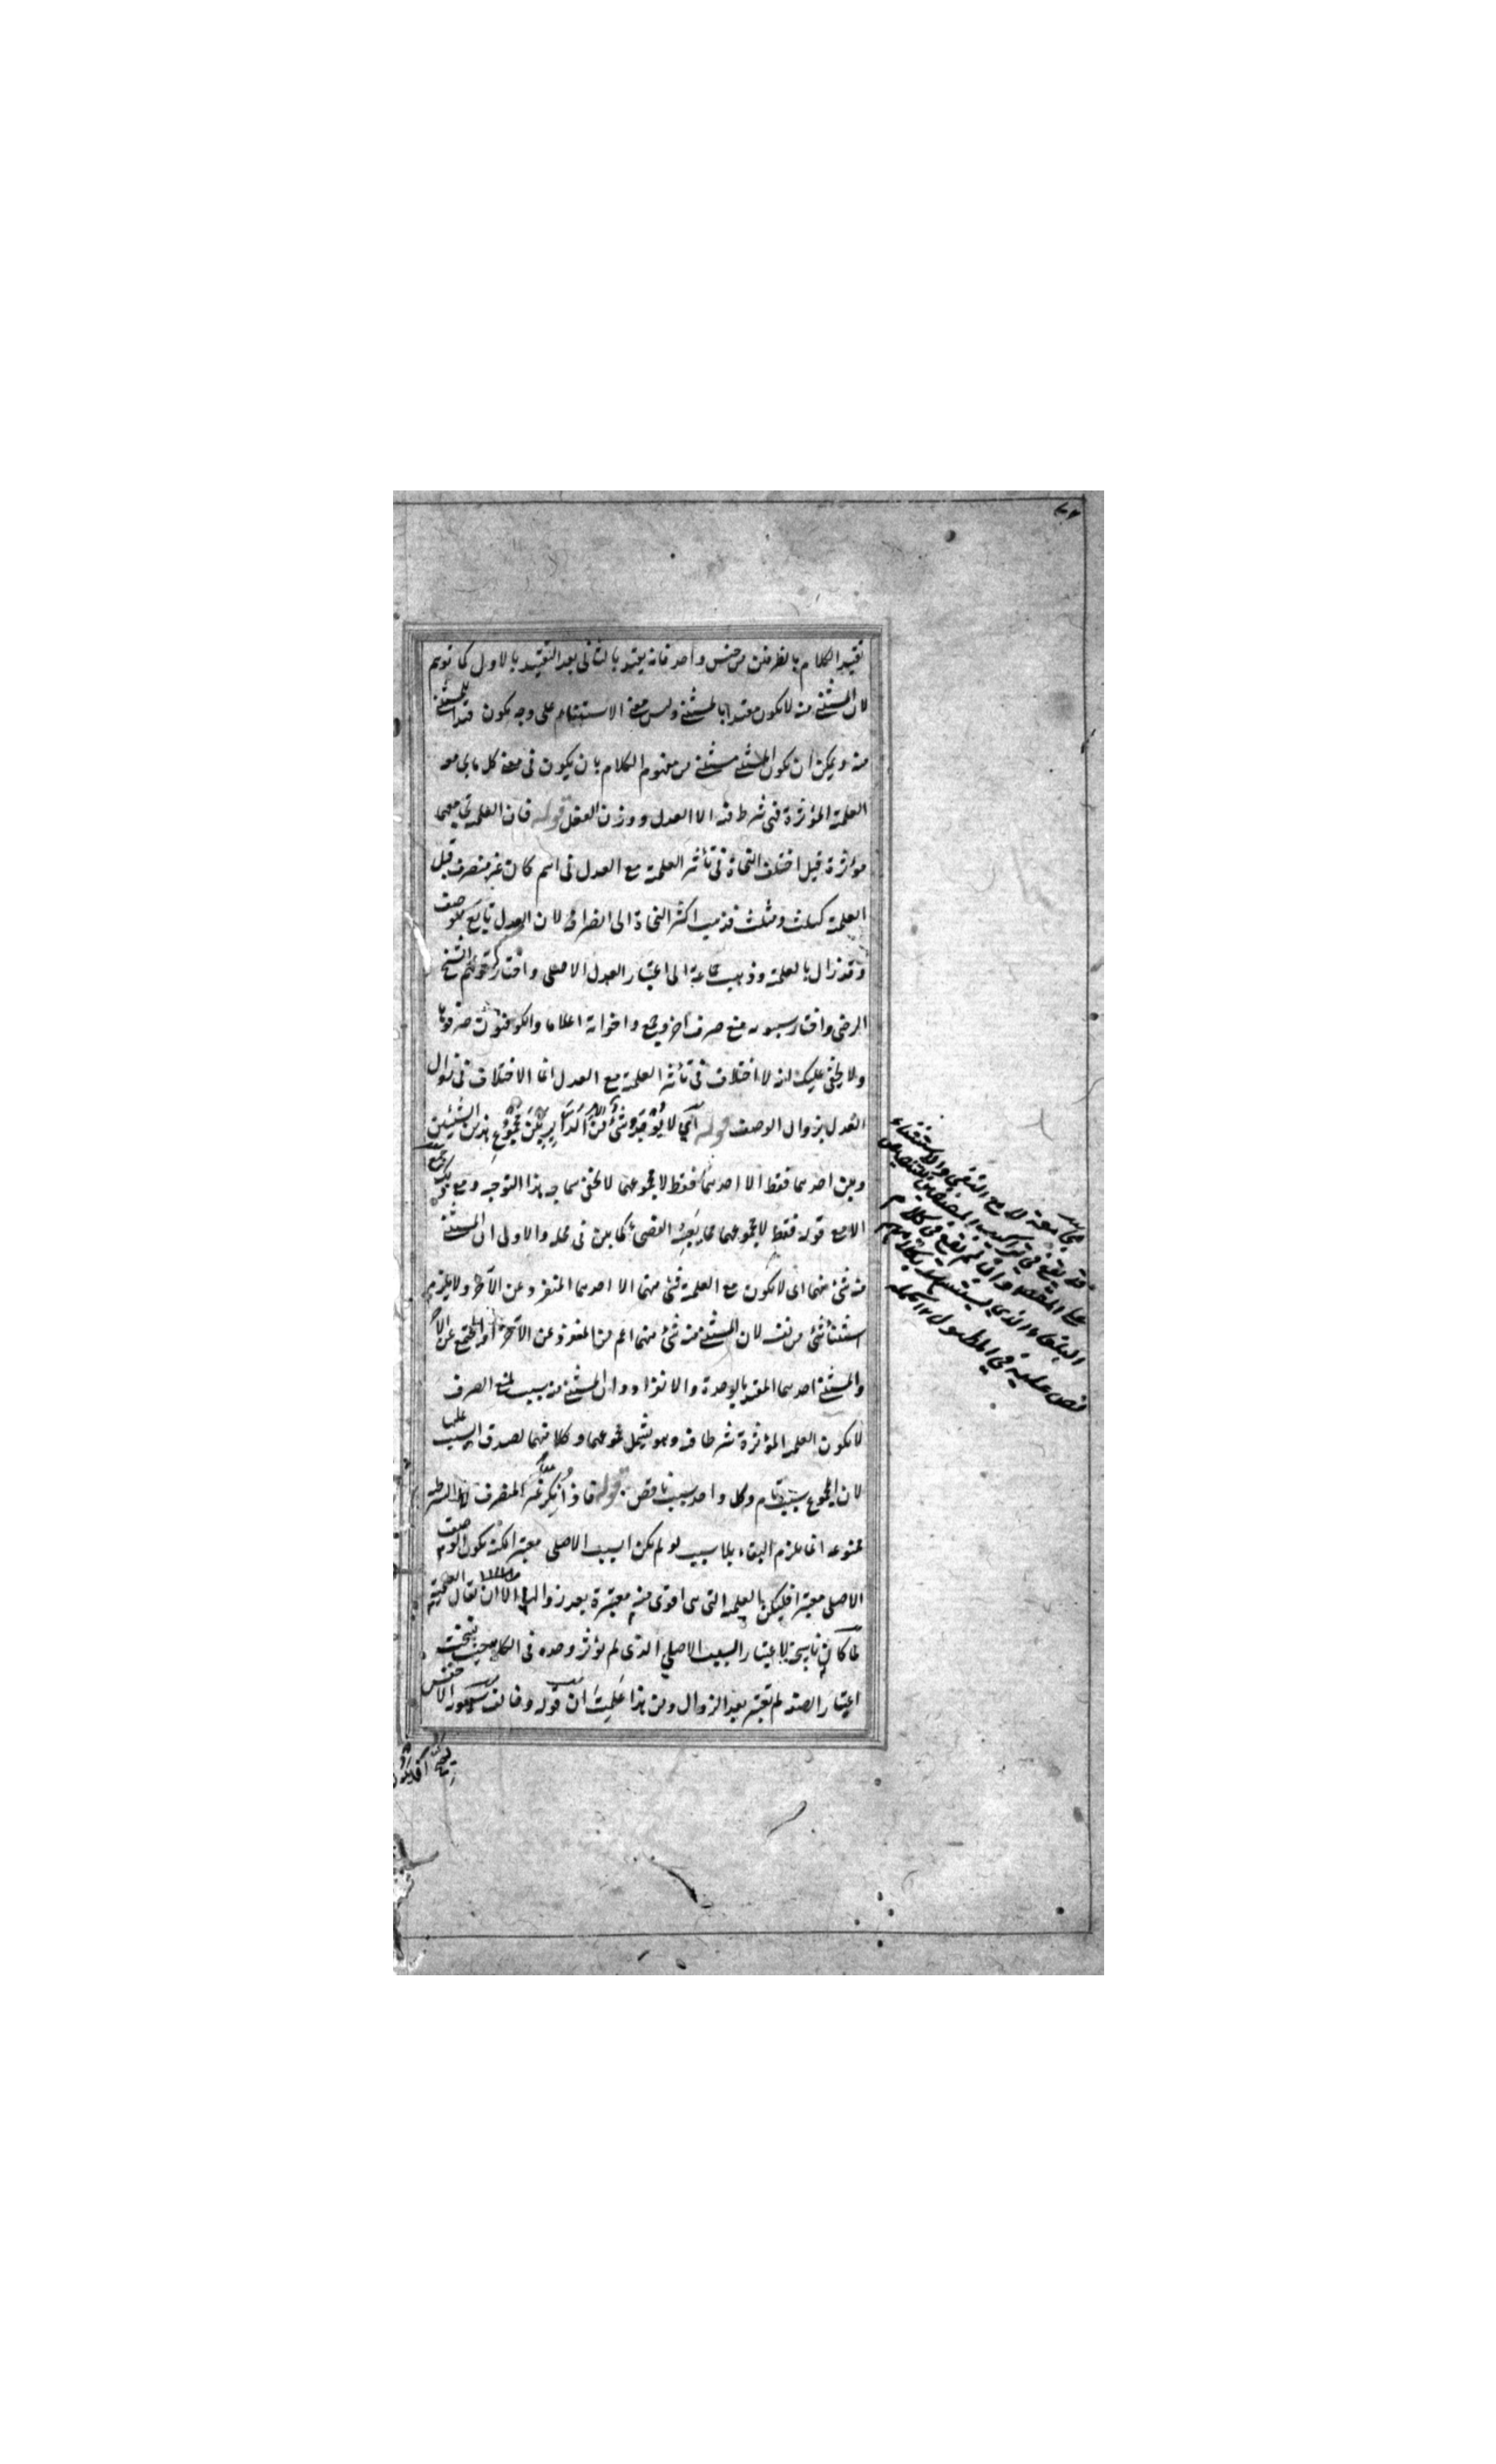 تقييد الكلام بالظرفين من جنس واحد فانه يقيد بالثانى بعد التقييد بالاول كما توهم
لان المستثنى منه لا يكون مقيدا بالمستثنى وليس معنى الاستثناء على وجه يكون قيدا للمستثنى
منه ويمكن ان يكون المستثنى مستثنى من مفهوم الكلام بان يكون فى معنى كل ما يجامعه
العلمية المؤثرة فهى شرط فيه الا العدل ووزن الفعل قوله فان العلمية تجامعهما
مؤثرة قيل اختلف النحاة فى تأثير العلمية مع العدل فى اسم كان غير منصرف قبل
العلمية كثلث ومثلث فذهب اكثر النحاة الى انصرافه لان العدل تابع للوصف
وقد زال بالعلمية وذهب جماعة الى اعتبار العدل الاصلى واختار الشيخ
الرضى واختار سيبويه منع صرف اخر وجمع واخواته اعلاما والكوفيون صرفوها
ولا يخفى عليك انه لا اختلاف فى تأثير العلمية مع العدل انما الاختلاف فى زوال
العدل بزوال الوصف قوله اى لا يوجد شئ من الامر الدائر بين مجموع هذين الشيئين
وبين احدهما فقط الا احدهما فقط لا مجموعهما لا يخفى سماجة هذا التوجيه ومع
الا مع قوله فقط لا مجموعهما مما يعجبه كما بين فى محله والاولى ان المستثنى
منه شئ منهما اى لا يكون مع العلمية شئ منهما الا احدهما المنفرد عن الآخر ولا يلزم
استثناء شئ من نفسه لان المستثنى منه شئ منهما اعم من المنفرد عن الآخر او المجتمع عن الآخر
والمستثنى احدهما المقيد بالوحدة والانفراد وان المستثنى منه سبب لمنع الصرف
لا يكون العلمية المؤثرة شرطا فيه وهو يشمل مجموعهما وكلا منهما لصدق السبب عليها
لان المجموع سبب تام وكل واحد سبب ناقص قوله فاذا نكر غير المنصرف الشرطية
ممنوعة انما يلزم البقاء بلا سبب لو لم يكن السبب الاصلى معتبرا لكنه يكون الوصف
الاصلى معتبرا فليكن العلمية التى هى اقوى منه معتبرة بعد زوالها الا ان يقال العلمية
لما كان ناسخة لاعتبار السبب الاصلى الذى لم يؤثر وحده فى الكلام حيث نسخت
اعتبار الصفة لم تعتبر بعد الزوال ومن هذا علمت ان قوله وخالف سيبويه الاخفش
مجامعة لا مع النفى والاستثناء
قد يقع فى تراكيب المصنفين
وان لم يقع فى كلام
البلغاء الذى يستشهد بكلامهم
نص عليه فى المطول